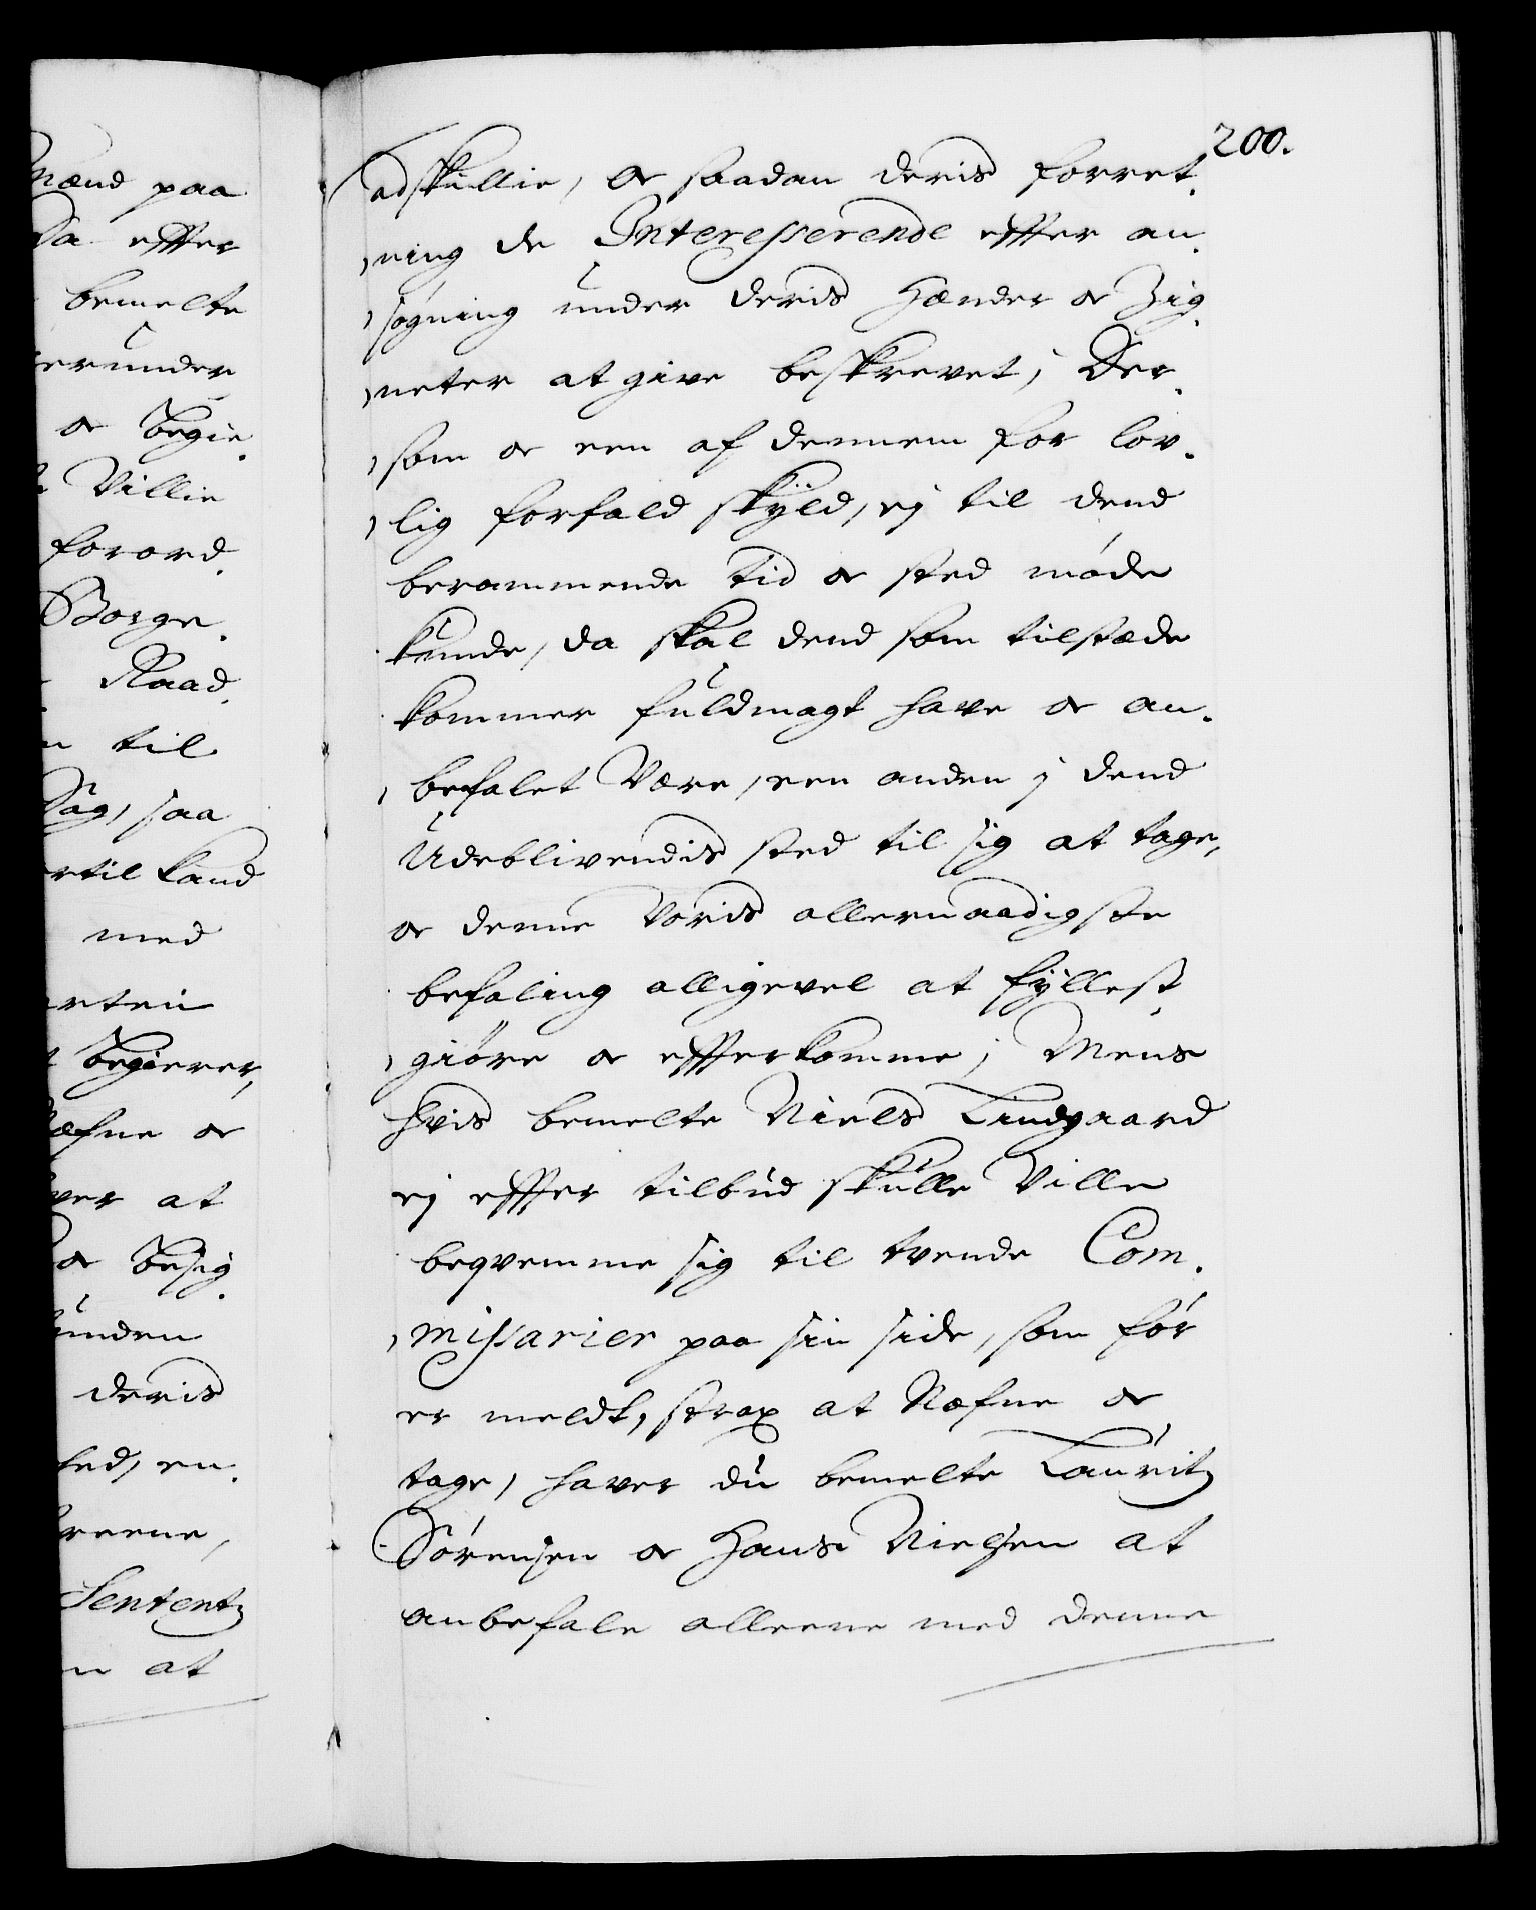 mænd paa
Da effter
bemelte
erunder
og begie,
Villie
forord,
Borge,
Raad,
til
Sag, saa
rtil kand
med
rten
begierer,
næfne og
ver at
og besig,
unden
deris
hed, en,
reene,
Sententz
at
200.
adskillie, og saadan deris forret,
,ning de Interesserende effter an,
,søgning under deris hænder og Zig,
,neter at give beskrevet; Der,
,som og een af dennem for lov,
,lig forfald skyld, ej til dend
berammende tid og sted møde
kunde, da skal dend som tilstæde
kommer fuldmagt have og an,
,befalet være, een anden j dend
Udeblivendis sted til sig at tage,
og denne voris allernaadigste
befaling alligevel at fyllest,
,giøre og effterkomme; Mens
hvis bemelte Niels Lindgaard
ej effter tilbud skulle ville
beqvemme sig til tvende Com,
,missarier paa sin side, som før
er meldt, strax at Næfne og
tage, haver du bemelte Lauritz
Sørensen og Hans Nielsen at
anbefale alleene med denne